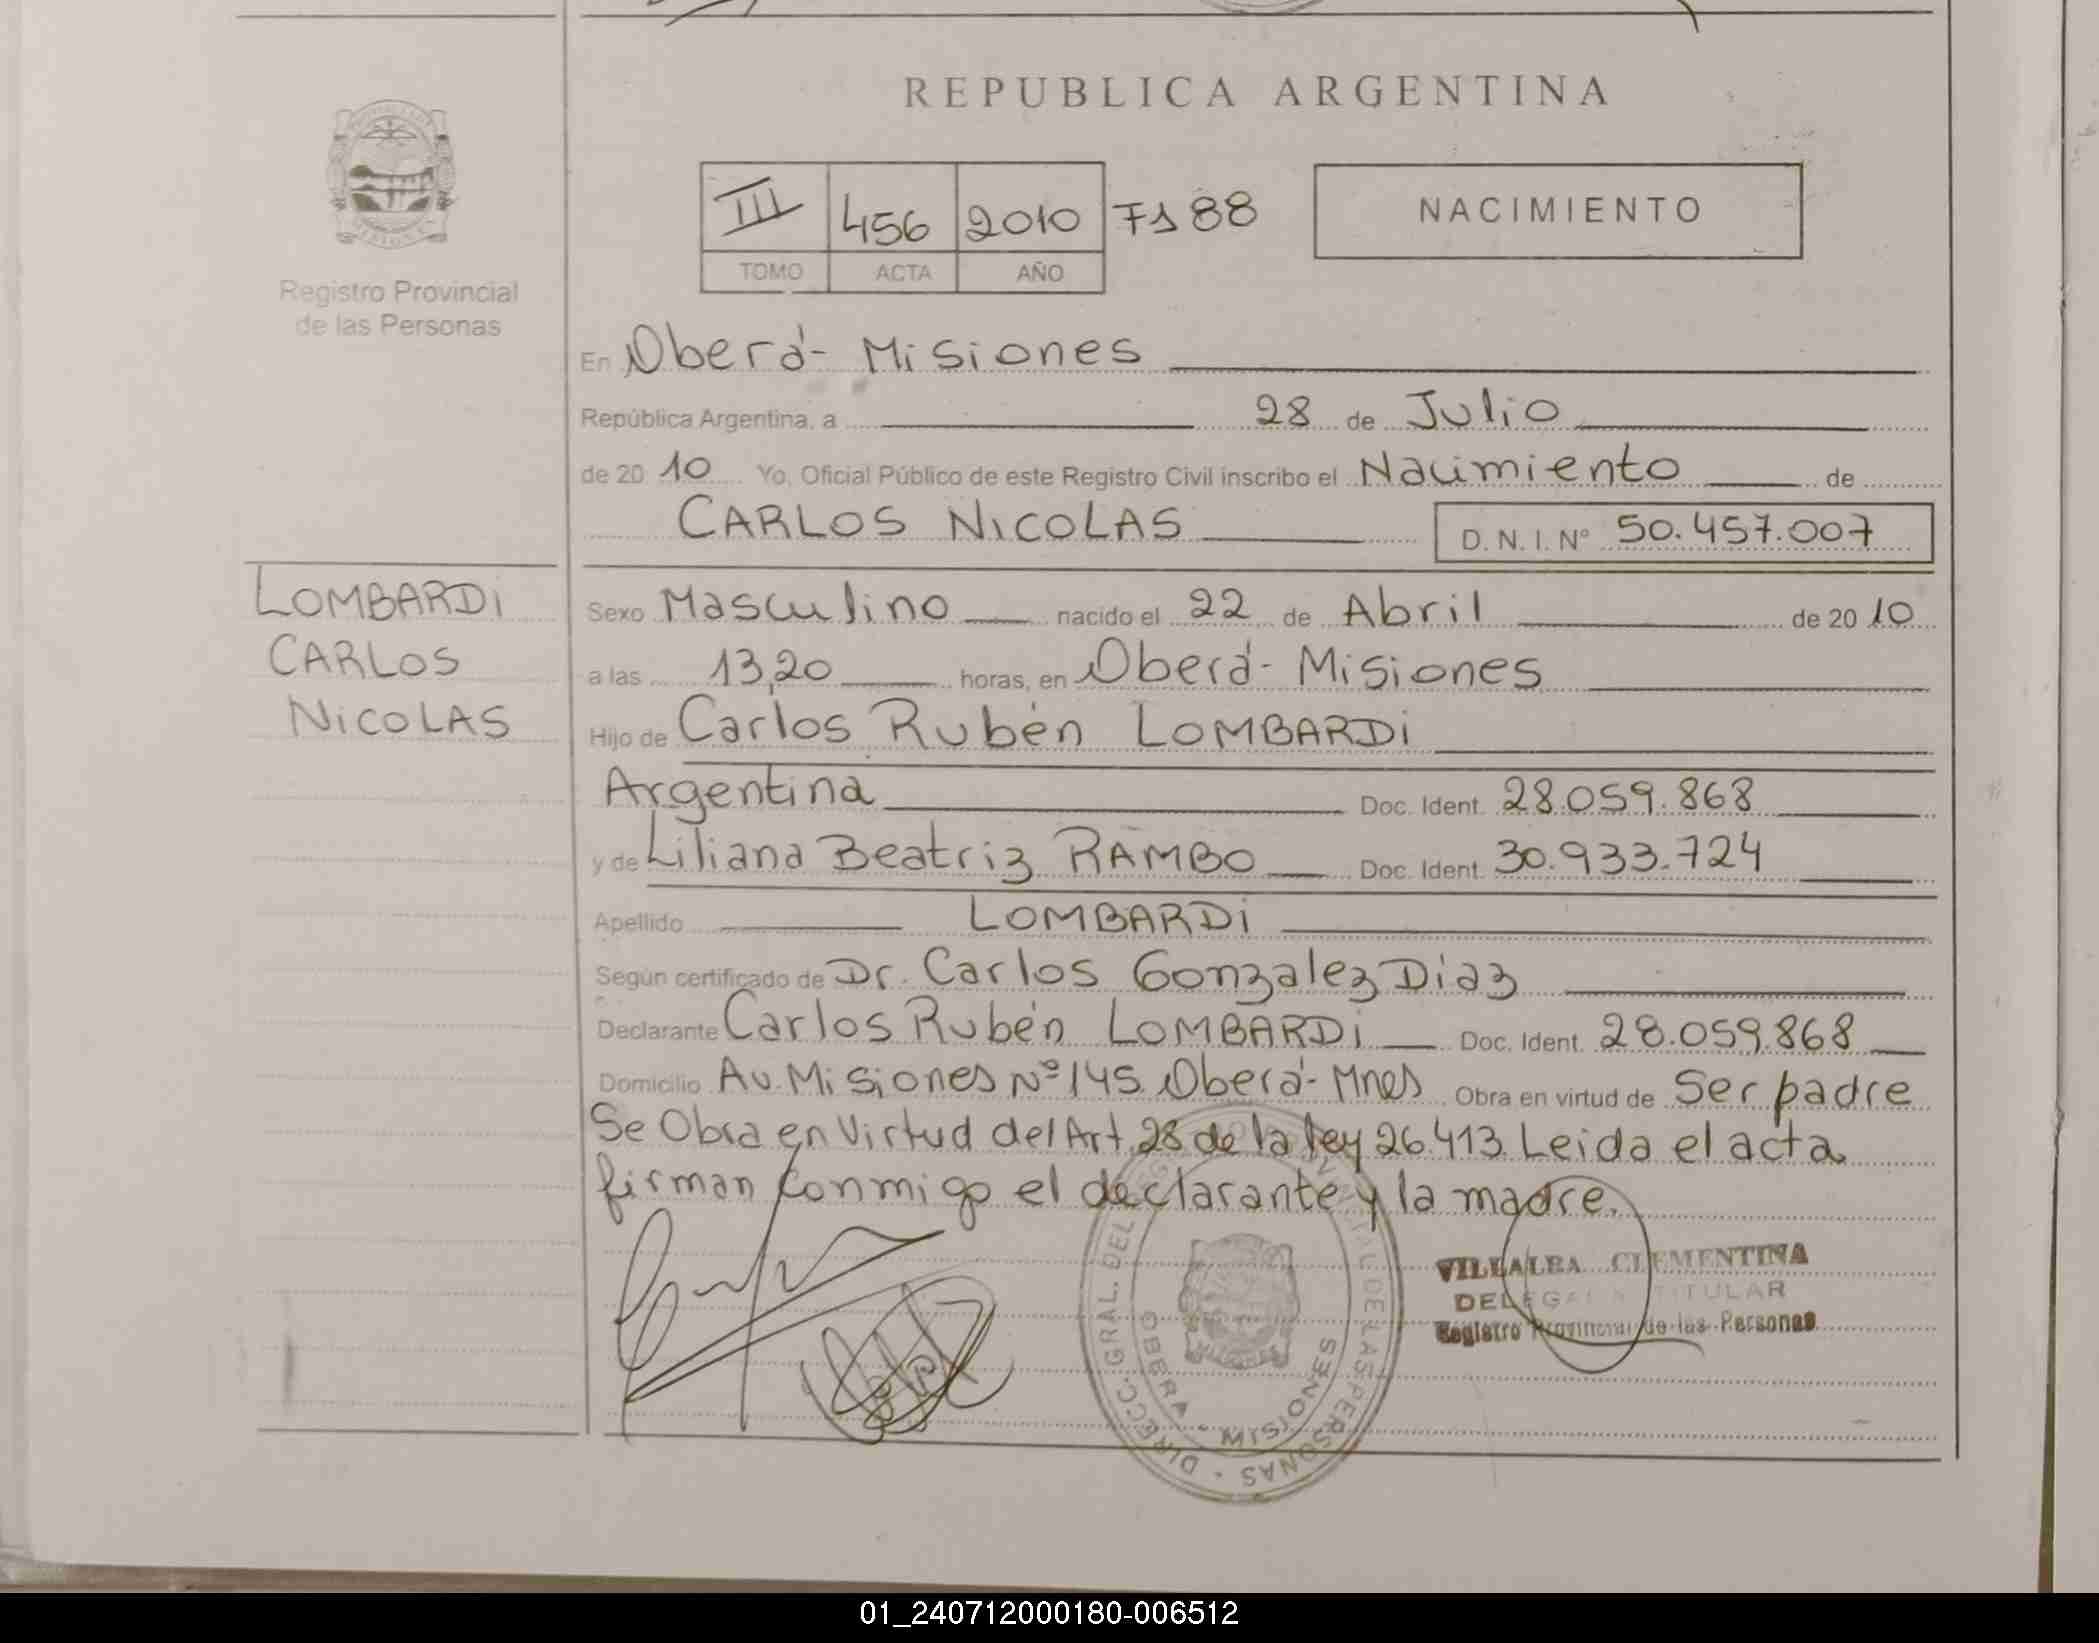 REPUBLICA ARGENTINA
III 456 2010 Fs 88
TOMO ACTA AÑO
NACIMIENTO
Registro Provincial
de las Personas
En Oberá - Misiones
República Argentina, a 28 de Julio
de 20 10 Yo, Oficial Público de este Registro Civil inscribo el Nacimiento de
CARLOS NICOLAS D.N.I. Nº 50.457.007
LOMBARDI
CARLOS
NICOLAS
Sexo Masculino nacido el 22 de Abril de 20 10
a las 13,20 horas, en Oberá - Misiones
Hijo de Carlos Rubén LOMBARDI
Argentina Doc. Ident. 28.059.868
y de Liliana Beatriz RAMBO Doc. Ident. 30.933.724
Apellido LOMBARDI
Según certificado de Dr. Carlos Gonzalez Diaz
Declarante Carlos Rubén LOMBARDI Doc. Ident. 28.059.868
Domicilio Av. Misiones Nº 145. Oberá - Mnes Obra en virtud de Ser padre
Se Obra en Virtud del Art. 28 de la ley 26.413. Leida el acta
firman conmigo el declarante y la madre.
VILLALBA CLEMENTINA
TITULAR
Registro Provincial de las Personas
DIRECC. GRAL. DEL DE LAS PERSONAS
OBERA - MISIONES
01_240712000180-006512